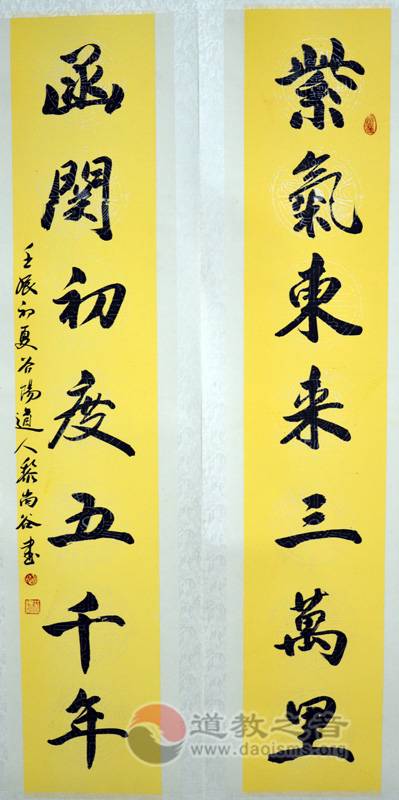 紫氣東来三萬里
函関初度五千年
壬辰初夏谷陽道人黎尚谷書
道教之音
www.daoisms.org